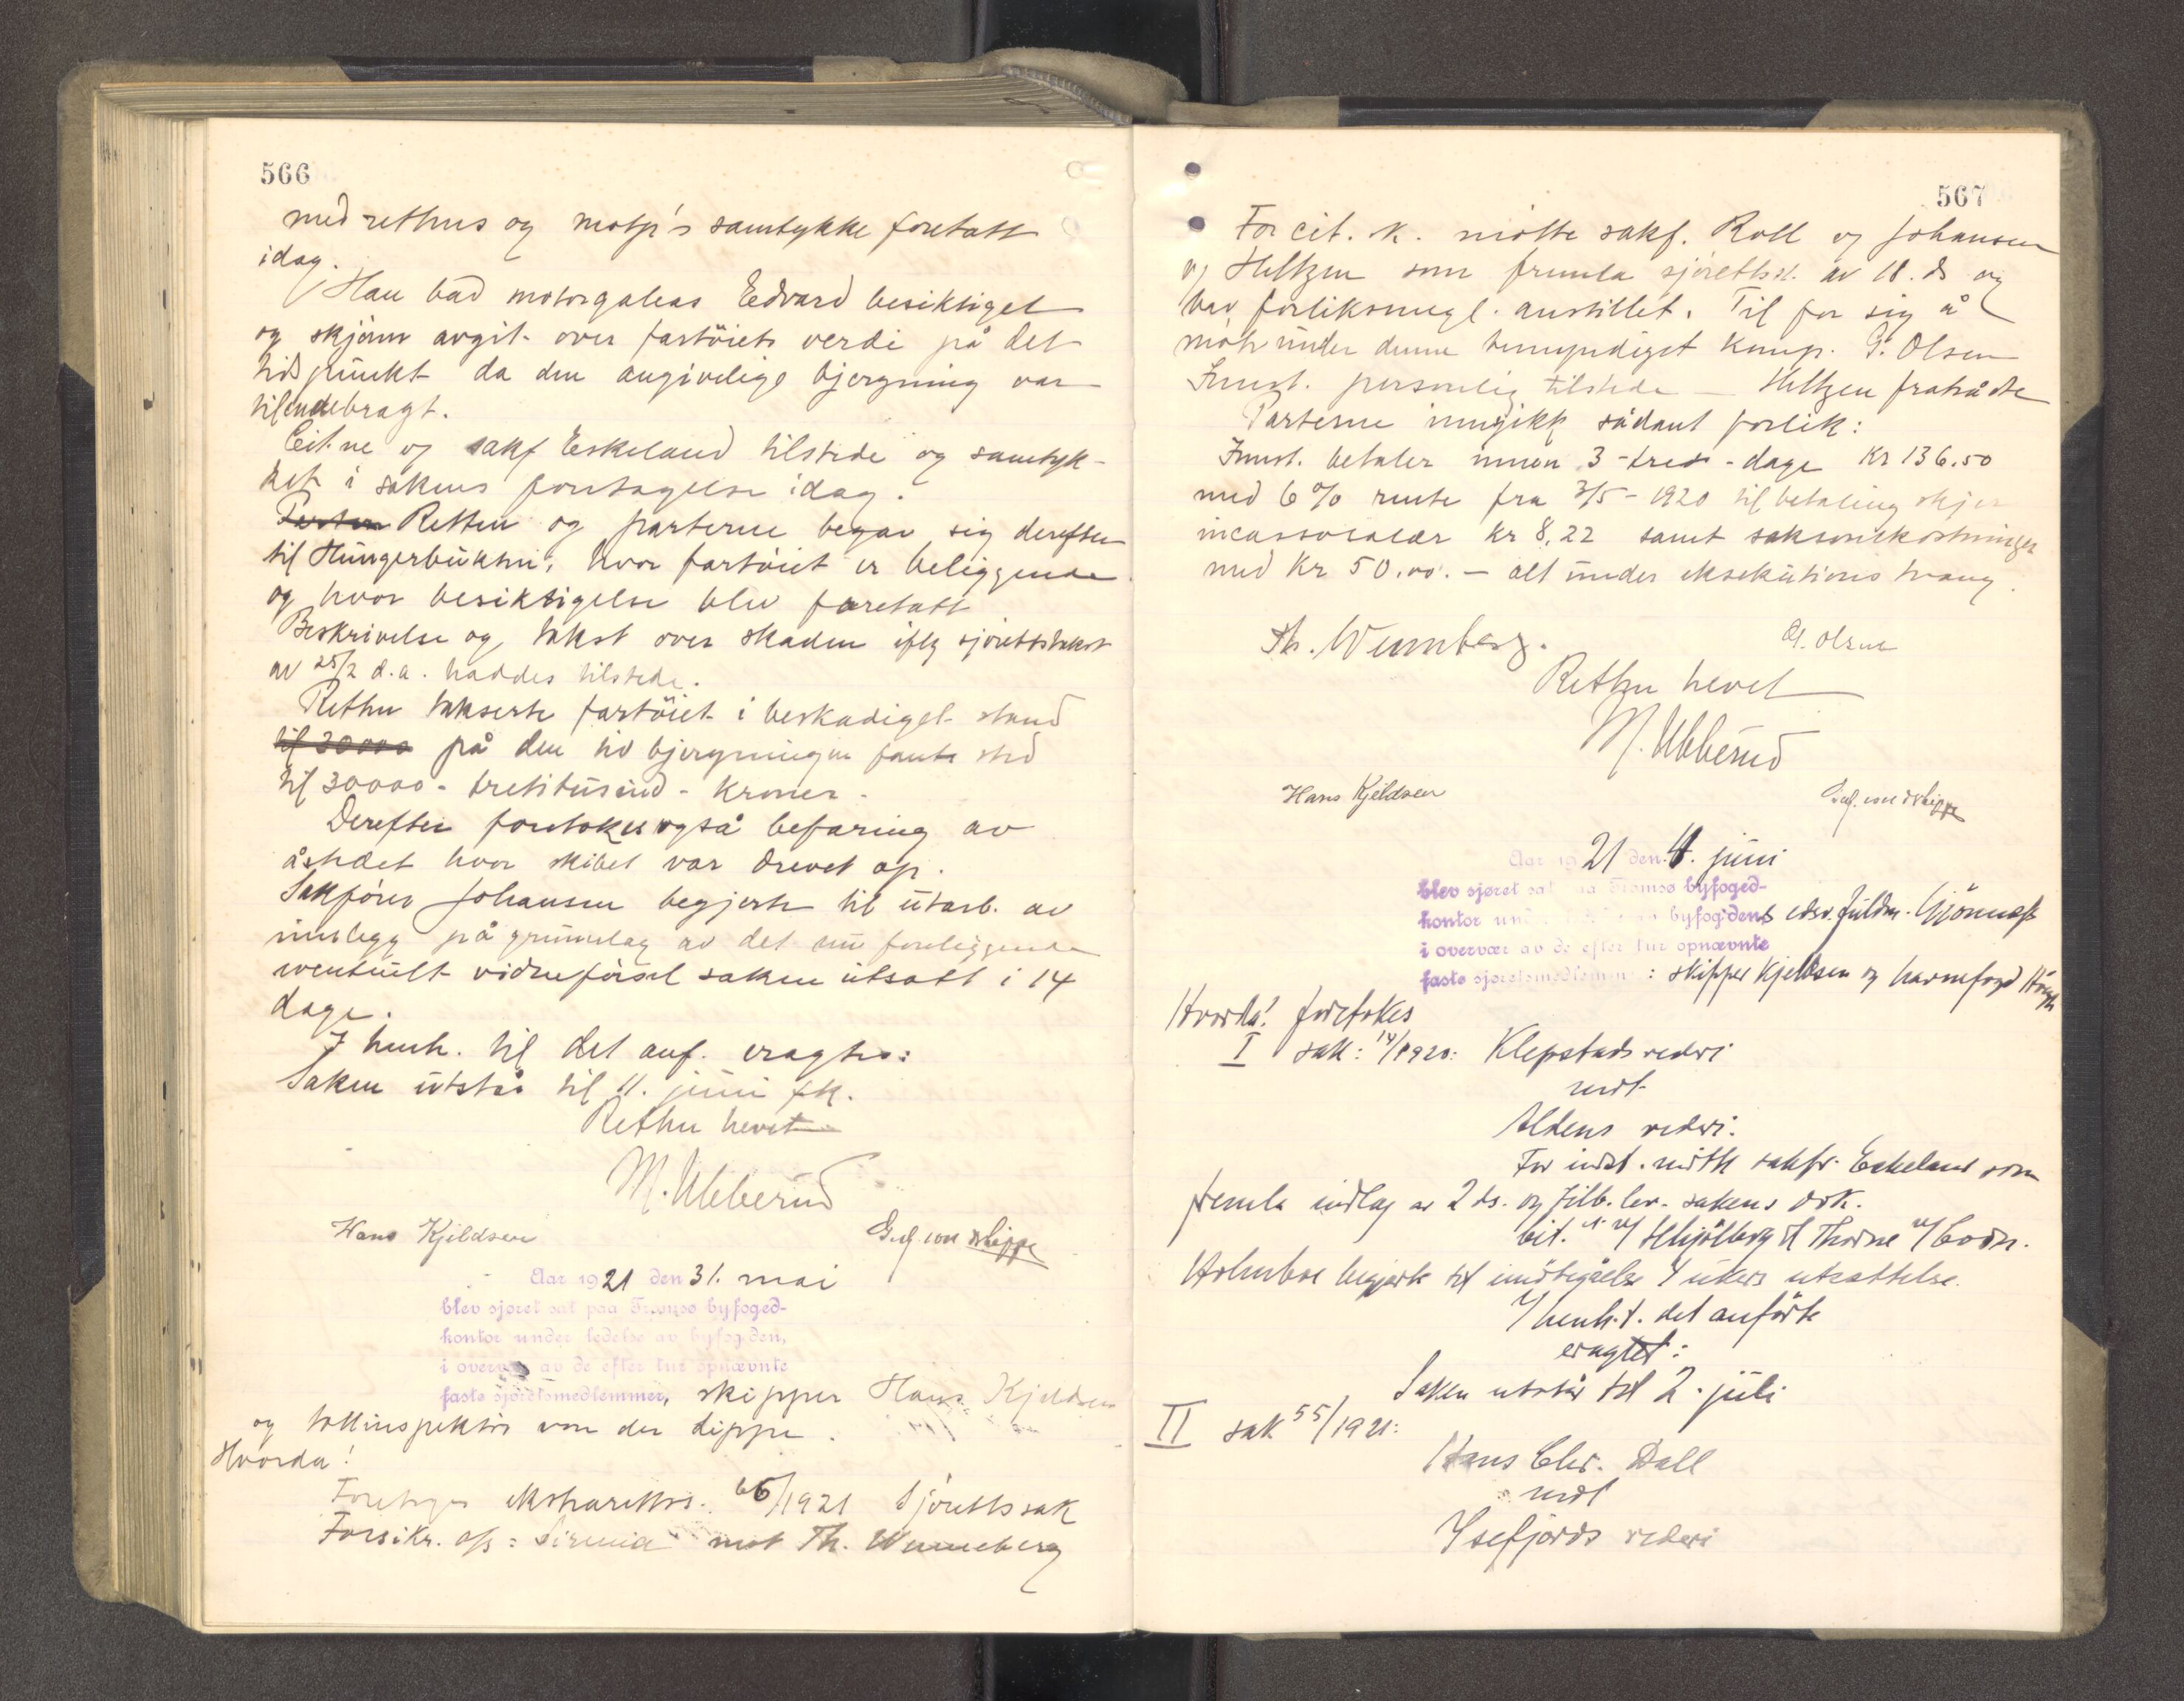 566
med rettens og motp's samtykke foretatt
idag.
Han bad motorgaleas Edvard besiktiget
og skjønn avgit over fartöiets verdi på det
tidspunkt da den angivelige bjergning var
tilendebragt.
Cit.ne og sakf Eskeland tilstede og samtyk-
ket i sakens foretagelse idag.
Retten og parterne begav sig derefter
til Hungerbukten, hvor fartöiet er beliggende
og hvor besiktigelse blev foretatt
Beskrivelse og takst over skaden iflg sjörettstakst
av 25/2 d.a. haddes tilstede.
Retten takserte fartöiet i beskadiget stand
til 30000 på den tid bjergningen fant sted
til 30000 - trettitusind - kroner.
Derefter foretokes også befaring av
åstedet hvor skibet var drevet op.
Sakförer Johansen begjerte til utarb. av
innlegg på grunnlag av det nu foreliggende
eventuelt vidneförsel saken utsatt i 14
dage.
I henh. til det anf. eragtes:
Saken utstår til 11. juni fk.
Retten hevet
M. Ubberud
Hans Kjeldsen
Aar 1921 den 31. mai
blev sjøret sat paa Tromsø byfoged-
kontor under ledelse av byfogden,
i overvær av de efter tur opnævnte
faste sjøretsmedlemmer, skipper Hans Kjeldsen
og tollinspektör von der Lippe.
Hvorda!
Foretages ekstrarettss. 66/1921 Sjörettssak
Forsikr. a/s: Sirenia mot Th. Wenneberg
567
For cit. m. møtte sakf. Roll og Johansen
v/ Heltzen som fremla sjörettsst. av 18. ds og
bad forliksmegl. anstillet. Til for sig å
möte under denne bemyndiget komp. G. Olsen
Innst. personlig tilstede - Heltzen fratrådte
Parterne inngikk sådant forlik:
Innst. betaler innen 3 - tre - dage kr 136.50
med 6 % rente fra 3/5 - 1920 til betaling skjer
incassosalær kr 8,22 samt saksomkostninger
med kr 50.00. - alt under eksekutions tvang.
G. Olsen
Retten hevet
M. Ubberud
Hans Kjeldsen
Aar 1921 den 4. juni
blev sjøret sat paa Tromsø byfoged-
kontor under ledelse av byfogdens edsv. fuldm.
i overvær av de efter tur opnævnte
faste sjøretsmedlemmer: skipper Kjeldsen og havnefogd
Hvorda! foretokes
I sak: 14/1920: Klepstads rederi
mot
Aldens rederi.
For indst. mötte sakfr. Eskeland som
fremla indlæg av 2 ds. og tilb. lev. sakens dok.
Holmboe begjærte til imötegåelse 4 ukers utsættelse.
I henh. t. det anförte
eragtet:
Saken utstår til 2. juli
II sak 55/1921:
Hans Chr. Dall
mot
Ysefjords rederi